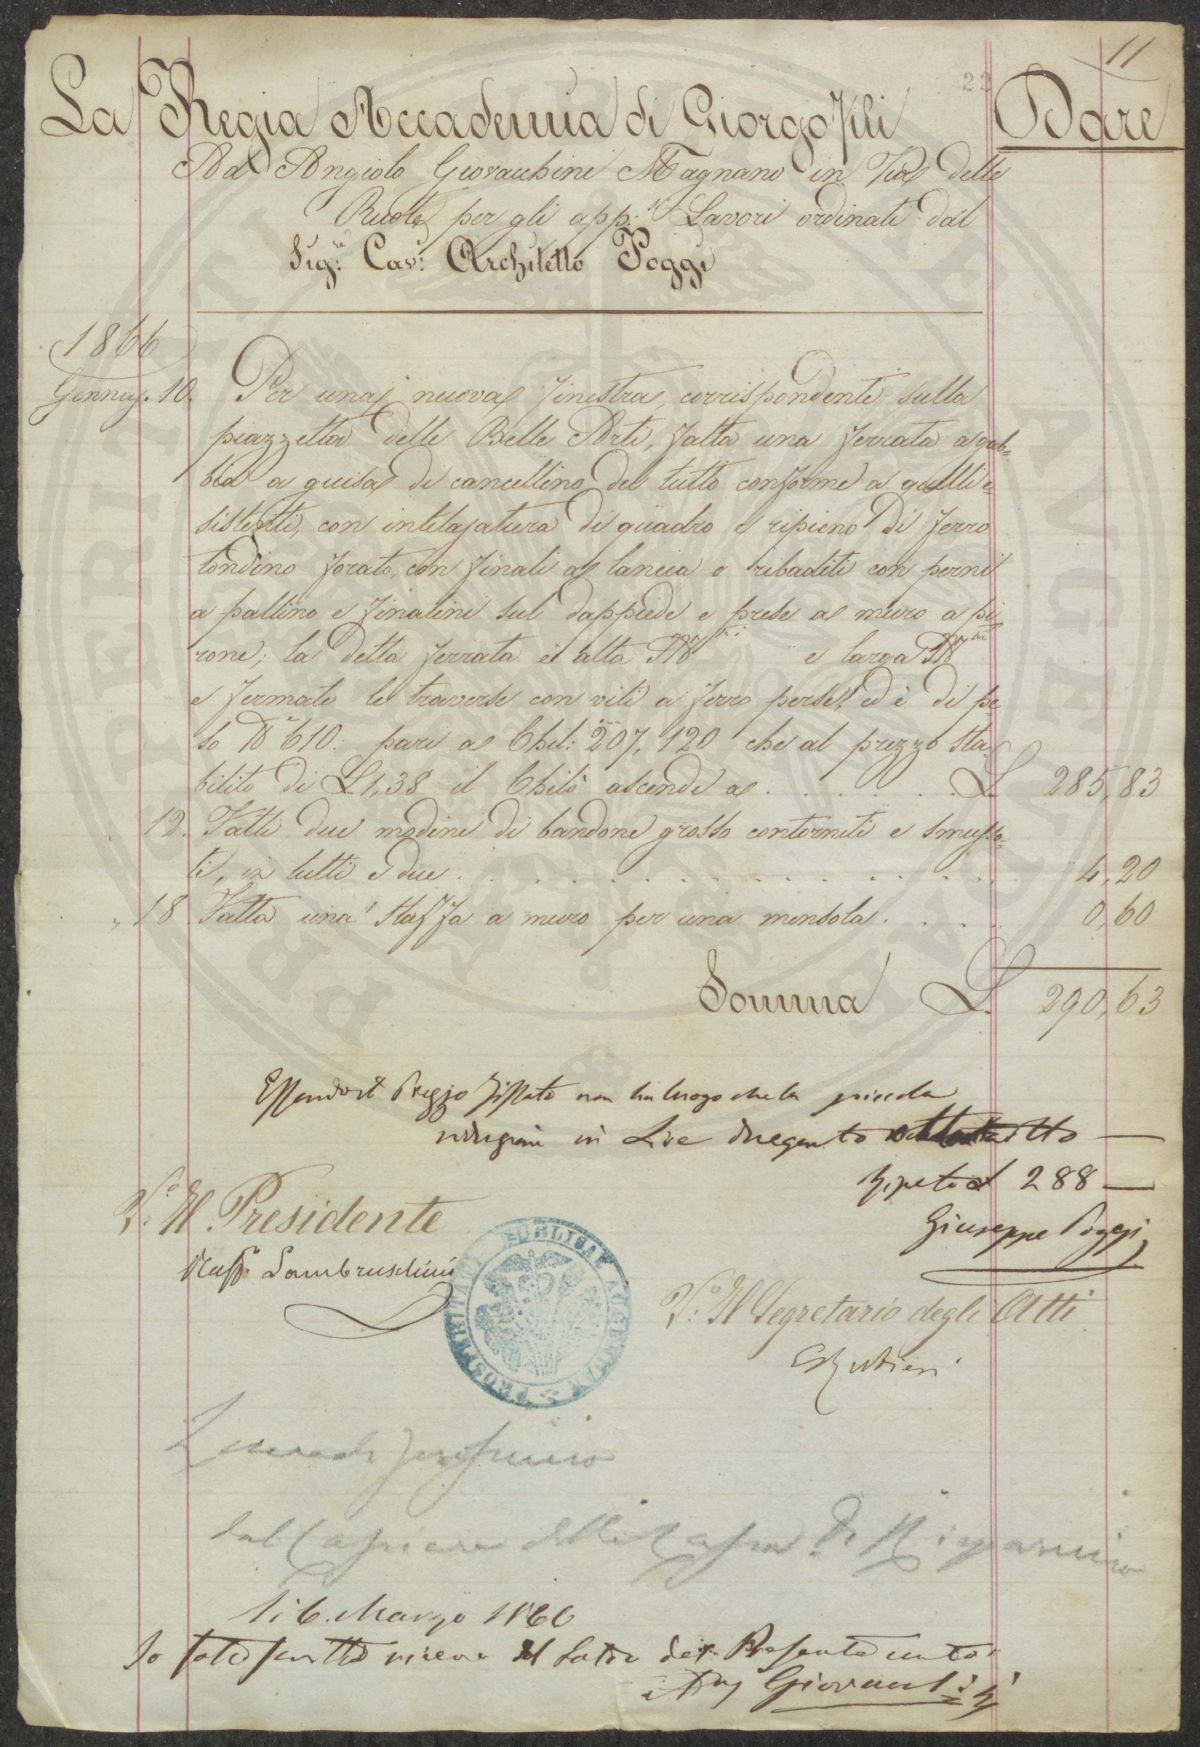 11
22
La Regia Accademia di Giorgofili Dare
Ad Angiolo Giovacchini Magnano in Via delle
Ruote per gli app.ti Lavori ordinati dal
Sig.re Cav.e Architetto Poggi
1866
Gennaj. 10. Per una nuova finestra corrispondente sulla
piazzetta delle Belle Arti, fatta una ferrata a gab-
bia a guisa di cancellino del tutto conforme a quelli e-
sistenti, con intelajatura di quadro e ripieno di ferro
tondino forato, con finali a lancia e ribaditi con perni
a pallino e finalini sul dappiede e prese a muro a pi-
rone; la detta ferrata è alta M e larga M
e fermate le traverse con viti a ferro perse! ed è di pe-
so lb 610. pari a Chil: 207,120 che al prezzo sta-
bilito di L 1,38 il Chilò ascende a . . . . . . . L 285,83
12. Fatti due modini di bandone grosso contorniti e smussa-
ti, in tutti e due . . . . . . . . . . 4,20
" 18 Fatta una staffa a muro per una mensola . . . . 0,60
Somma L. 290,63
Essendo il Prezzo fissato non ha luogo che la piccola
riduzione in Lire dugento otto —
Ripeto £ 288 —
Giuseppe Poggi
V.o Il Presidente
Raff. Lambruschini
PROSPERITATI PUBLICAE AUGENDAE
V.o Il Segretario degli Atti
E Rubieri
dal Cassiere della Cassa di Risparmio
li 6. Marzo 1866
Io sotto scritto riceve il Saldo del Presente conto
Ang Giovacchini